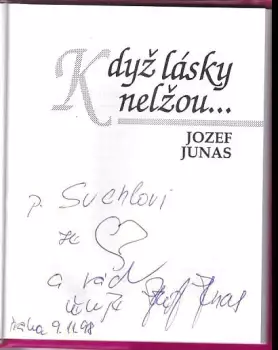 Když lásky
nelžou...
JOZEF
JUNAS
p. Suchlovi
ze
a rád
Jozef Junas
Praha 9.11.98